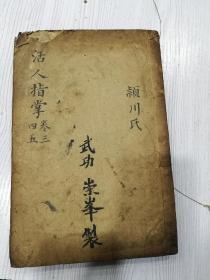 頴川氏
武功 崇峯製
活人指掌 卷三
四五